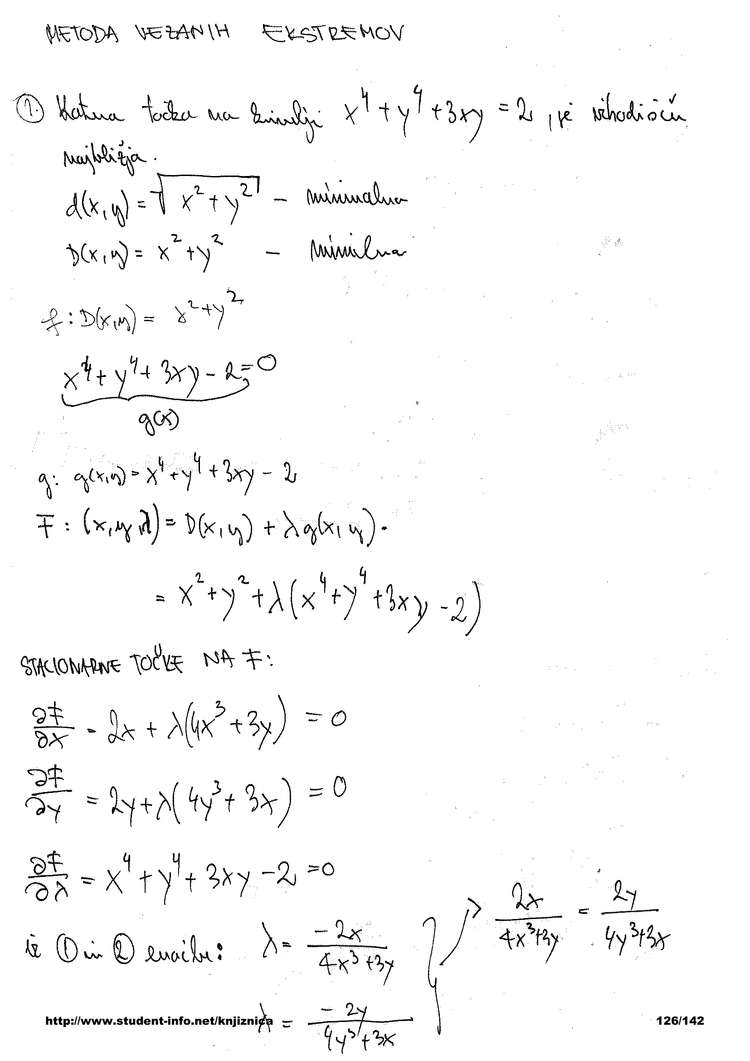 METODA VEZANIH EKSTREMOV
1. Katera točka na krivulji x⁴ + y⁴ + 3xy = 2, je izhodišču
najbližja.
d(x,y) = √(x² + y²) – minimalna
D(x,y) = x² + y² – minimalna
f: D(x,y) = x² + y²
x⁴ + y⁴ + 3xy - 2 = 0
g(x)
g: g(x,y) = x⁴ + y⁴ + 3xy - 2
F: (x,y,λ) = D(x,y) + λg(x,y).
= x² + y² + λ(x⁴ + y⁴ + 3xy - 2)
STACIONARNE TOČKE NA F:
∂F/∂x = 2x + λ(4x³ + 3y) = 0
∂F/∂y = 2y + λ(4y³ + 3x) = 0
∂F/∂λ = x⁴ + y⁴ + 3xy - 2 = 0
iz ① in ② enačbe: λ = -2x/(4x³ + 3y) } → 2x/(4x³+3y) = 2y/(4y³+3x)
λ = -2y/(4y³ + 3x)
http://www.student-info.net/knjiznica 126/142